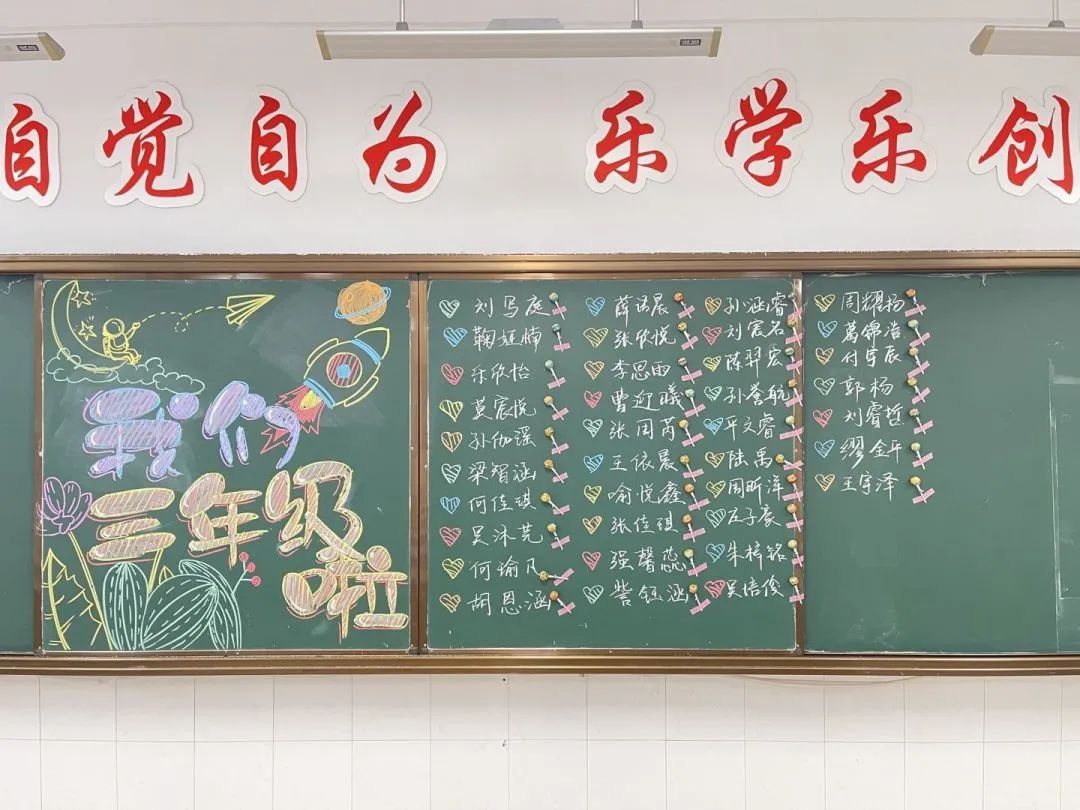 自觉自为 乐学乐创
我们
三年级
啦
刘马庭
鞠娅楠
乐欣怡
莫宸悦
孙伽瑶
梁智涵
何佳琪
吴沐芫
何瑜凡
胡恩涵
薛诺晨
张欣悦
李思雨
曹迎曦
张田芮
王依晨
喻悦鑫
张佳琪
强馨蕊
訾钰涵
孙涵睿
刘宸名
陈羿宏
孙誉航
平文睿
陆禹
周昕洋
庄子豪
朱梓铭
吴培俊
周耀扬
葛锦浩
付宇辰
郭杨
刘睿哲
缪金平
王宇泽